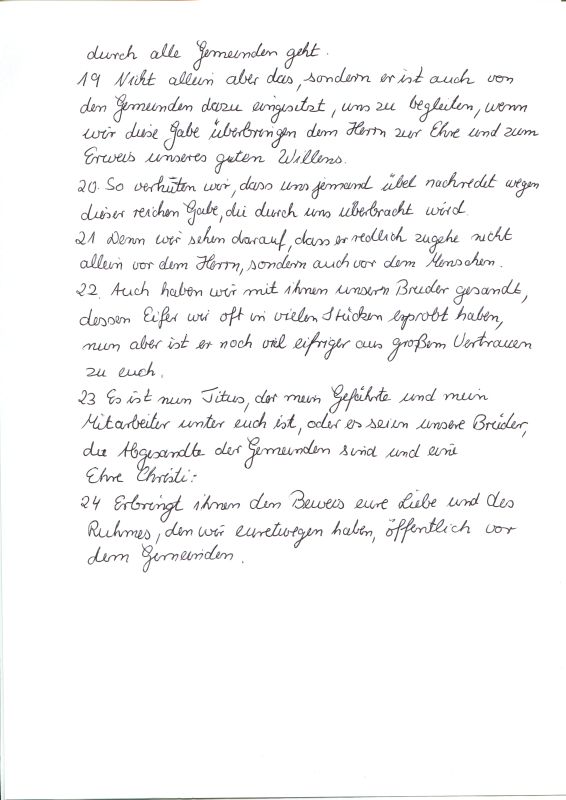 durch alle Gemeinden geht.
19 Nicht allein aber das, sondern er ist auch von
den Gemeinden dazu eingesetzt, uns zu begleiten, wenn
wir diese Gabe überbringen dem Herrn zur Ehre und zum
Erweis unseres guten Willens.
20. So verhüten wir, dass uns jemand übel nachredet wegen
dieser reichen Gabe, die durch uns überbracht wird.
21 Denn wir sehen darauf, dass er redlich zugehe nicht
allein vor dem Herrn, sondern auch vor dem Menschen.
22. Auch haben wir mit ihnen unseren Bruder gesandt,
dessen Eifer wir oft in vielen Stücken erprobt haben,
nun aber ist er noch viel eifriger aus großem Vertrauen
zu euch.
23 Es ist nun Titus, der mein Gefährte und mein
Mitarbeiter unter euch ist, oder es seien unsere Brüder,
die Abgesandte der Gemeinden sind und eine
Ehre Christi:
24 Erbringt ihnen den Beweis eure Liebe und des
Ruhmes, den wir euretwegen haben, öffentlich vor
dem Gemeinden.